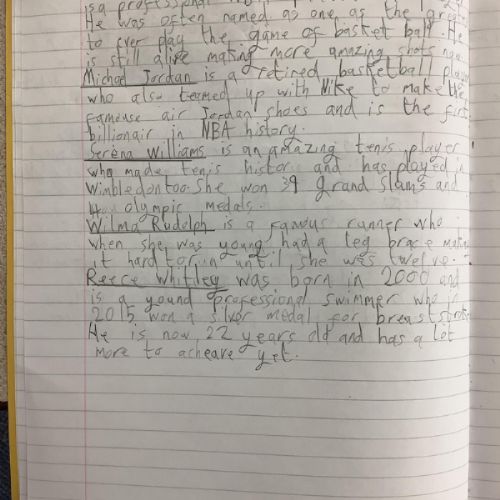 is a professional
He was often named as one as the greatest
to ever play the game of basket ball. He
is still alive making more amazing shots
Michael Jordan is a retired basketball play
who also teamed up with Nike to make the
famouse air Jordan shoes and is the first
billionair in NBA history.
Serena Williams is an amazing tenis player
who made tenis histor and has played in
Wimbledon too. She won 39 grand Slams and
4 olympic medals.
Wilma Rudolph is a famous runner who
when she was young had a leg brace making
it hard to run until she was twelve.
Reece Whitley was born in 2000 and
is a yound professional swimmer who in
2015 won a silvor medal for breaststroke
He is now 22 years old and has a lot
more to acheave yet.